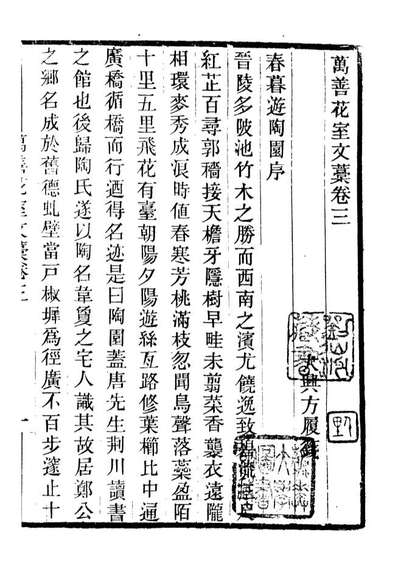 萬善花室文藁卷三
大興方履籛
春暮遊陶園序
晉陵多陂池竹木之勝而西南之濱尤饒逸致
紅芷百尋郭牆接天檐牙隱樹早畦未翦菜香襲衣遠隴
相環麥秀成浪時値春寒芳桃滿枝忽聞鳥聲落蘂盈陌
十里五里飛花有臺朝陽夕陽遊絲亙路修葉櫛比中通
廣橋循橋而行逌得名迹是曰陶園蓋唐先生荆川讀書
之館也後歸陶氏遂以陶名韋夐之宅人識其故居鄭公
之鄉名成於舊德虬壁當戸椒墀爲徑廣不百步邃止十
萬善花室文藁卷三
一